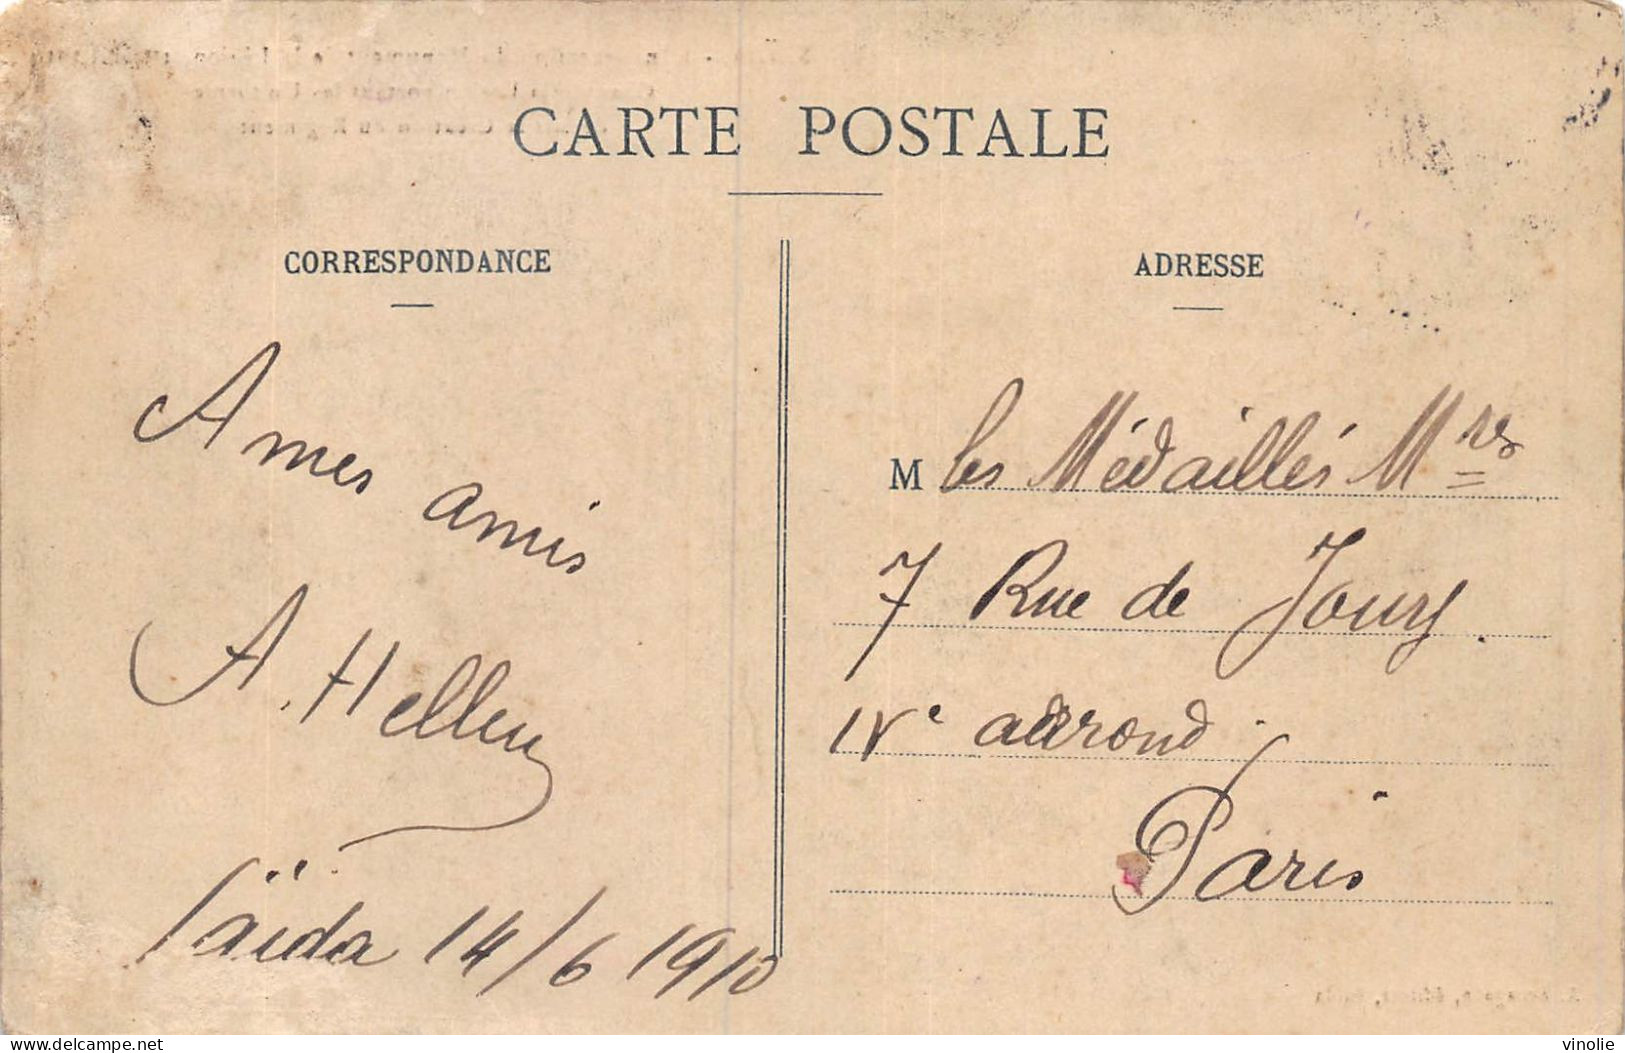 CARTE POSTALE
CORRESPONDANCE
ADRESSE
A mes amis
A. Helleu
Saïda 14/6 1910
M les Médaillés Mres
7 Rue de Jouy.
IVe arrond.
Paris
delcampe.net
vinolie